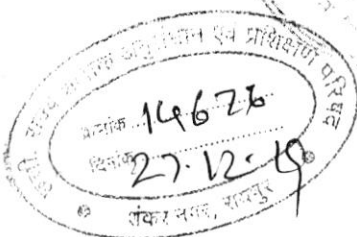 राज्य शैक्षिक अनुसंधान एवं प्रशिक्षण परिषद
क्रमांक...14626
दिनांक 27.12.19
शंकर नगर, रायपुर